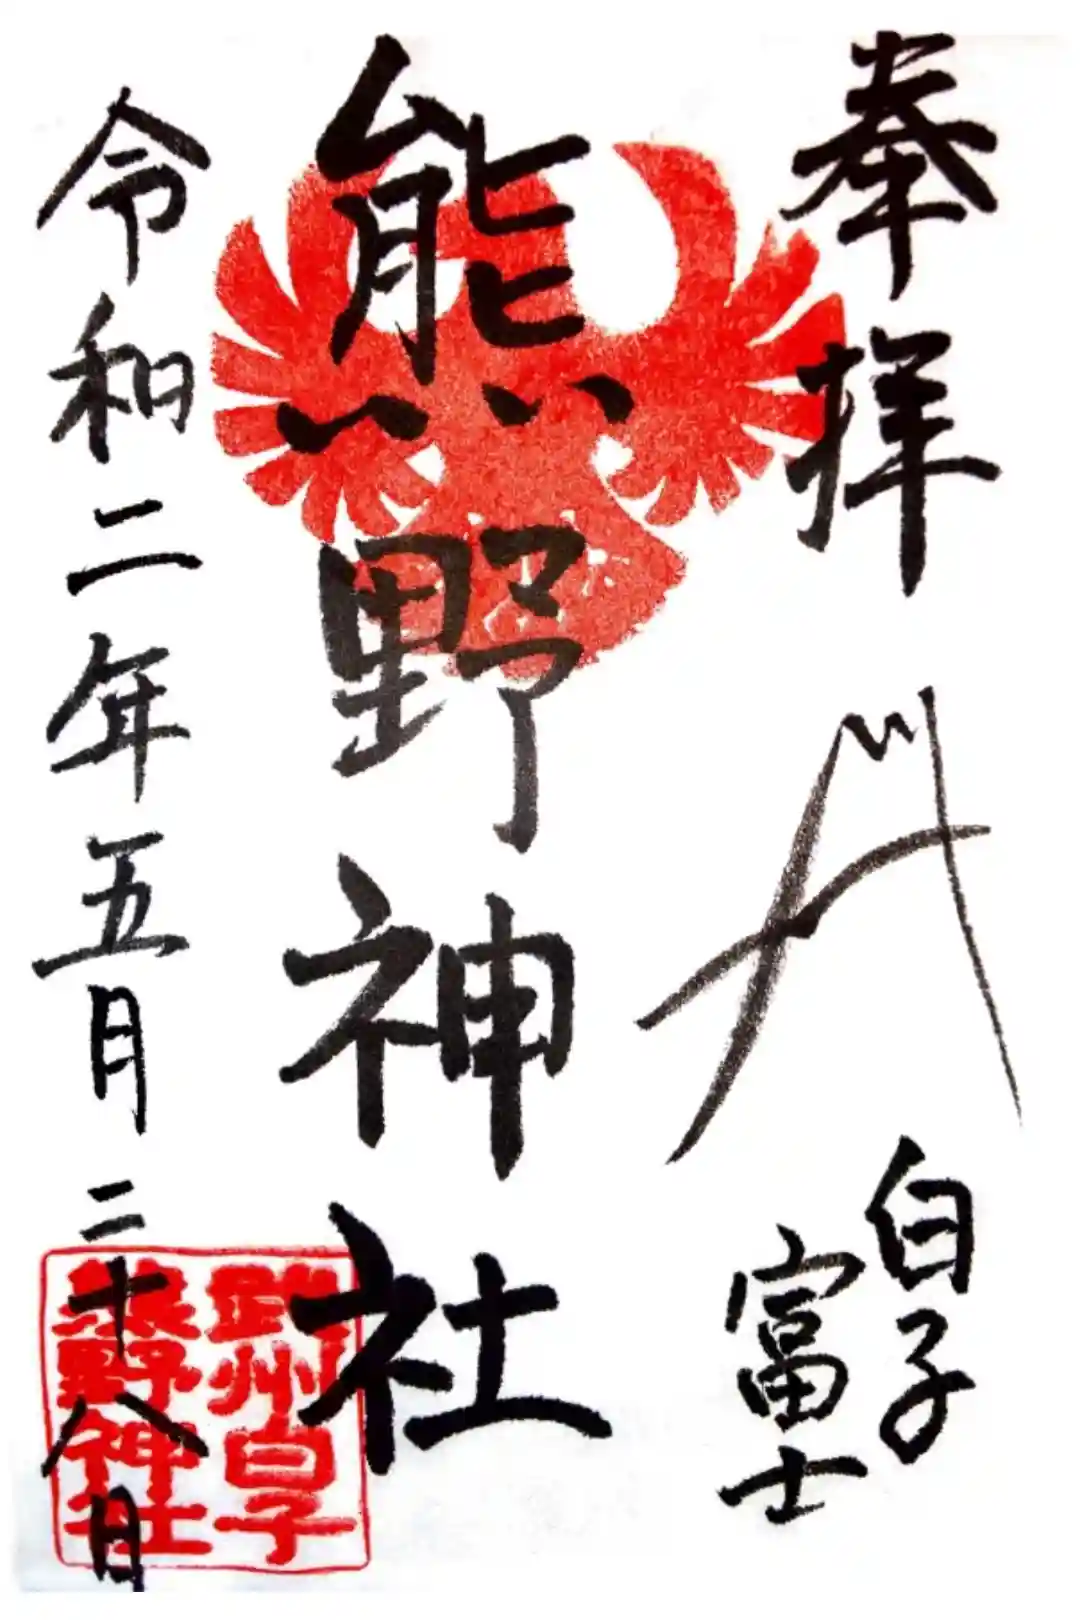 奉拝
白子
富士
熊野神社
令和二年五月二十八日
武州白子
熊野神社